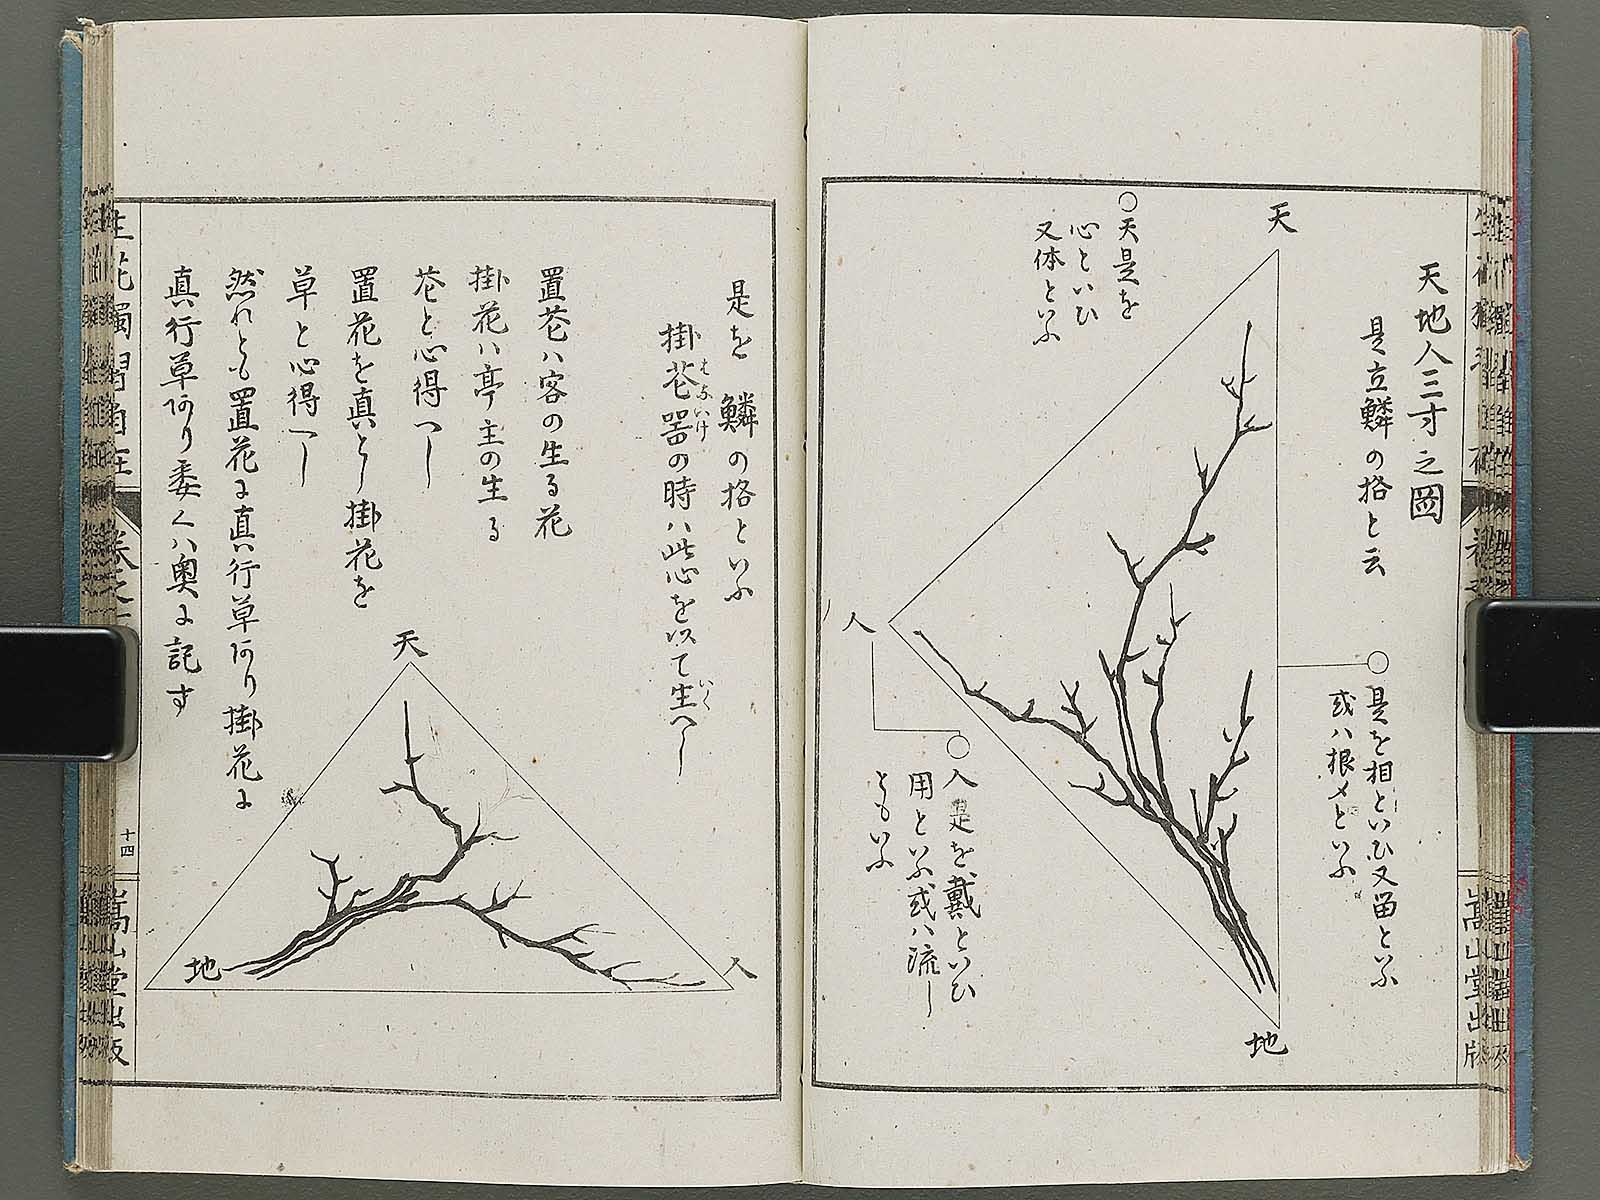 天地人三才之圖
是立鱗の格と云
天
○天是を
心といひ
又体といふ
○是を相といひ又留と云ふ
或ハ根〆といふ
人
○人是を戴といひ
用といふ或ハ流し
ともいふ
地
是を鱗の格といふ
掛芲器の時ハ此心を以て生へし
はないけ
いく
置芲ハ客の生る花
掛花ハ亭主の生る
芲と心得へし
置花を真とし掛花を
草と心得へし
然れとも置花に真行草あり掛花に
真行草あり委くハ奥に記す
天
地
人
生花獨習自在
卷之
十四
嵩山堂出版